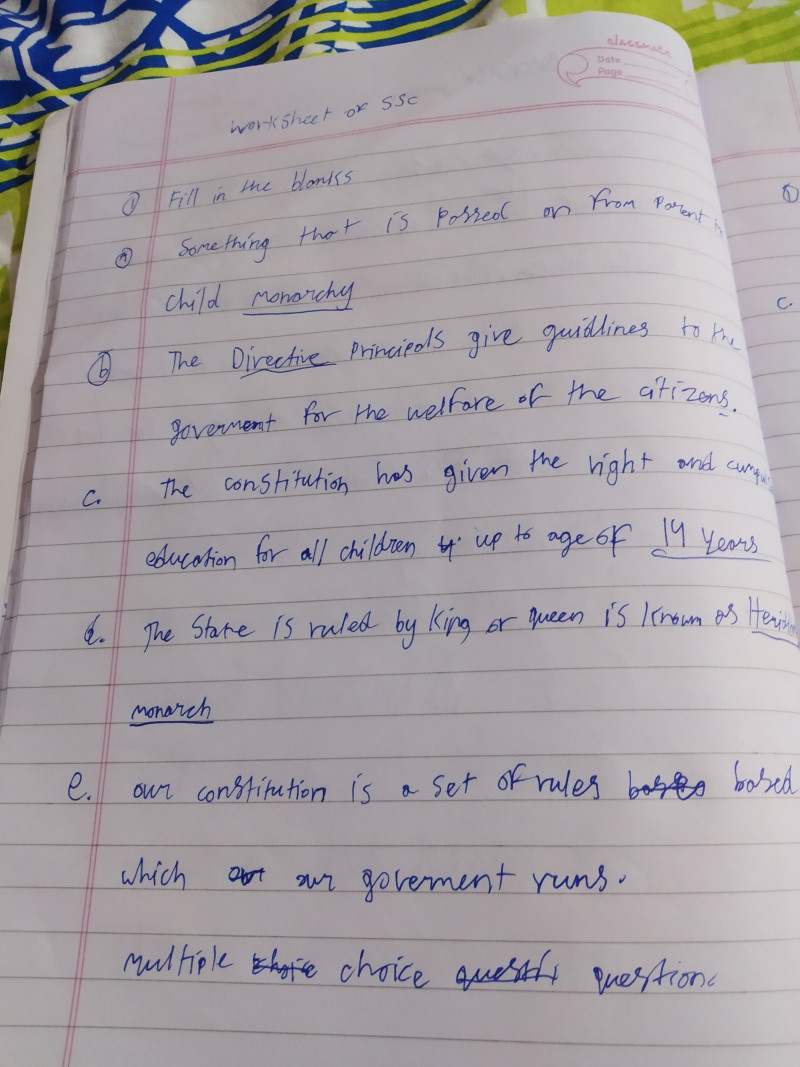 classmate
Date
Page
Worksheet of SSC
① Fill in the blanks
ⓐ Something that is passed on from parent to
child monarchy
ⓑ The Directive Principals give guidlines to the
goverment for the welfare of the citizens.
c. The constitution has given the right and
education for all children up to age of 14 years
d. The State is ruled by King or queen is known as
monarch
e. our constitution is a set of rules based
which our goverment runs.
multiple choice question
c.